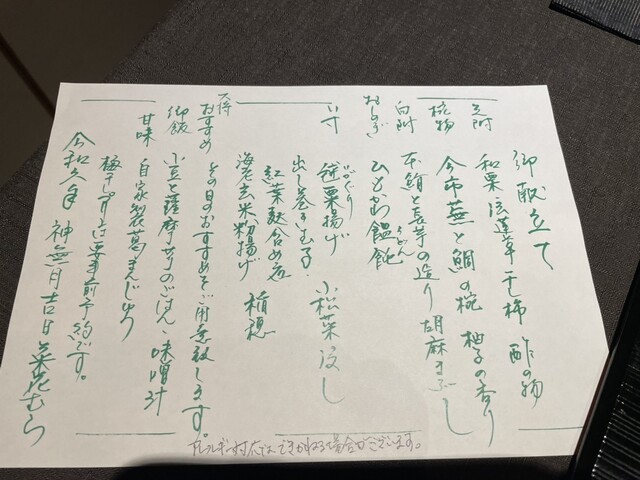 御献立て
先附 和栗 法蓮草 干し柿 酢の物
椀物 今市蕪と鯛の椀 柚子の香り
向附 本鮪と長芋の造り 胡麻まぶし
おしのぎ ひとから饂飩
うどん
八寸 毬栗揚げ 小松菜浸し
いがぐり
出し巻き玉子
紅葉麩含め煮 稲穂
海老玄米粉揚げ
大将おすすめ その日のおすすめをご用意致します。
御飯 小豆と薩摩芋のごはん 味噌汁
甘味 自家製葛まんじゅう
要事前予約です。
令和六年 神無月吉日 菜花むら
アレルギー対応はできかねる場合がございます。